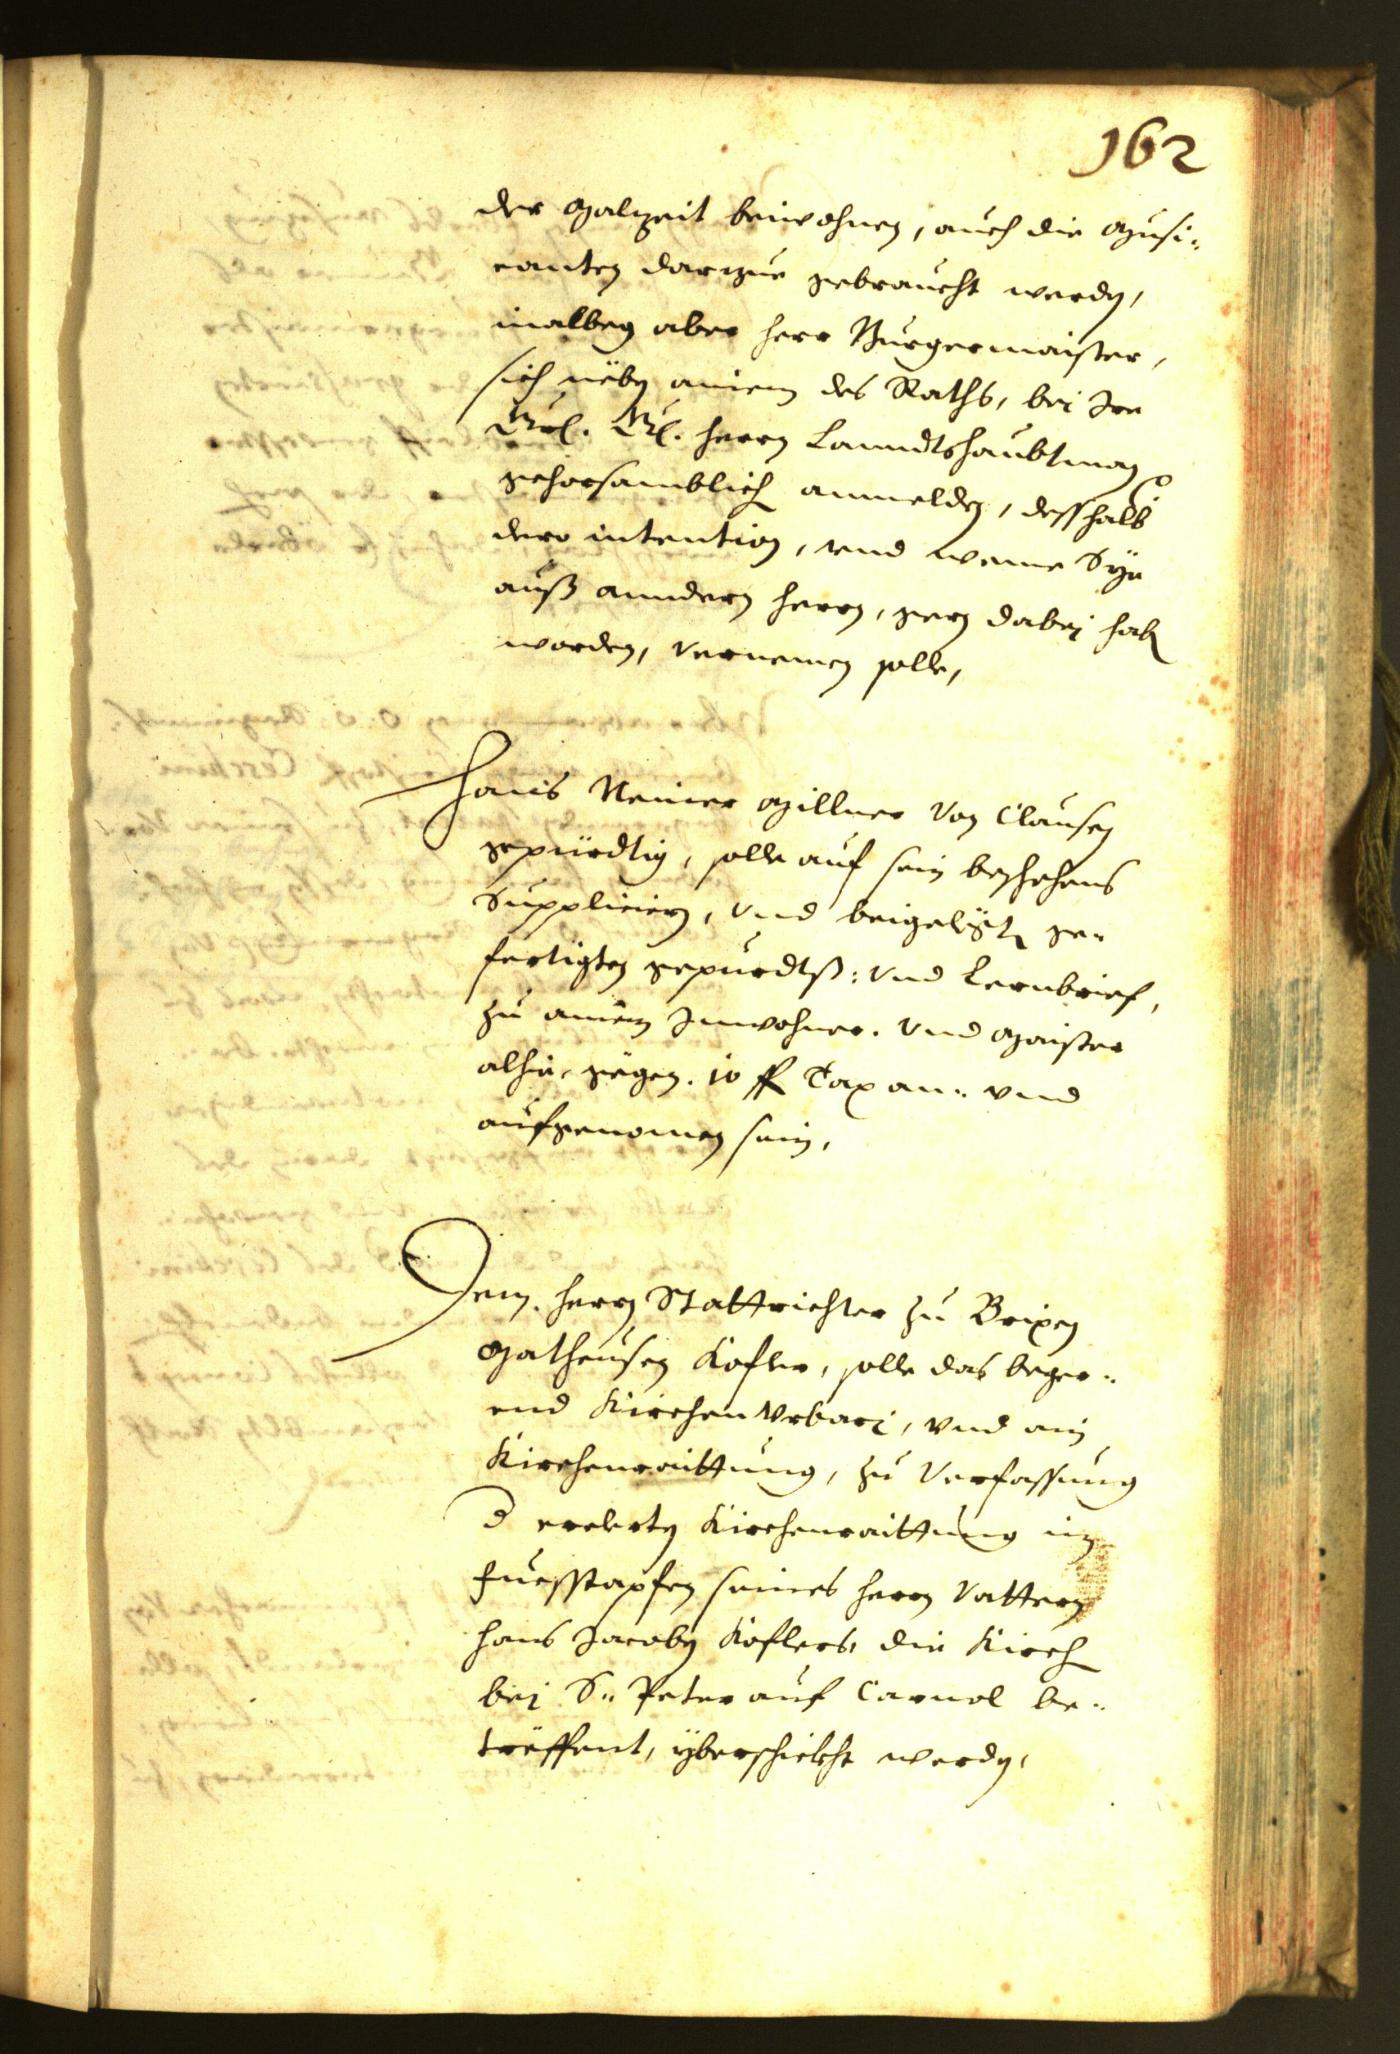 162
der Malzeit beiwohnen, auch die Musi-
canten darzue gebraucht werden,
inalbeg aber herr Burgermaister,
sich nëben ainem des Raths, bei Ire
herrn Lanndtshaubtman
gehorsamblich anmelden, desshalb
dero intention, vnd weme Sye
auß anndern herrn, gern dabei haben
worden, vernemen solle,
Hanns Reiner Millner von Clausen
gepürdtig, solle auf sein beschehens
Suppliciern, vnd beigelegte ge-
fertigten gepurdtß: vnd Lernbrief,
zu ainem Inwohner. vnd Maister
alhie, gegen. 10 fl Tax an: vnd
aufgenomen sein,
Dem. herrn Stattrichter zu Brixen
Matheusen Kofler, solle das beger-
end Kirchen Vrbari, vnd ain
Kirchenraittung, zu Verfassung
d erclerten Kirchenraittung in
fuessstapfen seines herrn Vattern
hans Jacoben Koflers, die Kirch
bei S: Peter auf Carnol be-
trëffent, yberschickht werden,